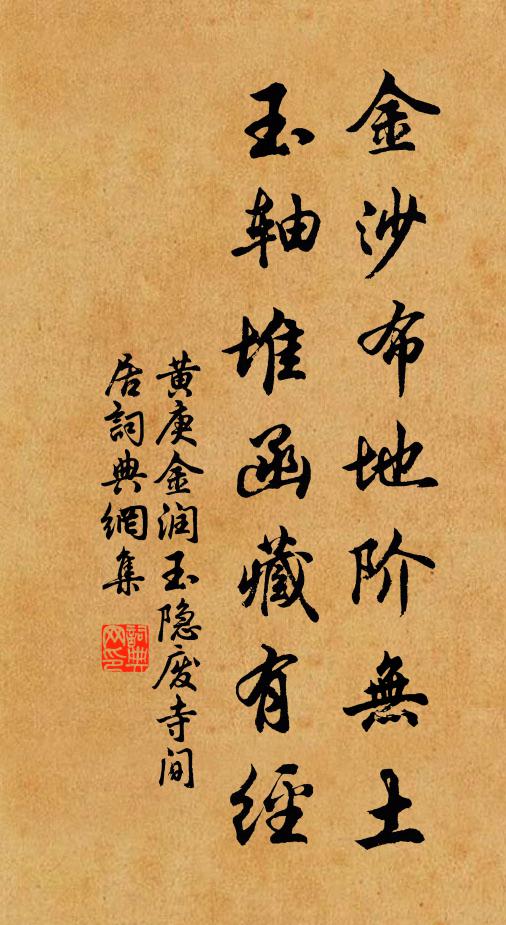 金沙布地阶無土
玉轴堆函藏有經
黄庚金润玉隐废寺间
居詞典網集
詞典网印